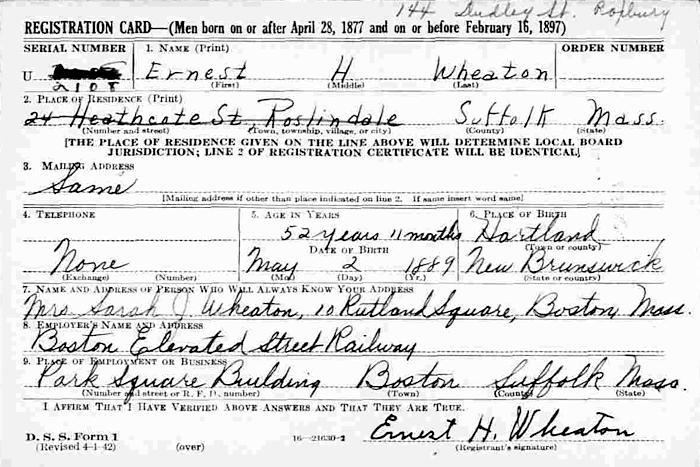 144 Dudley St. Roxbury
REGISTRATION CARD—(Men born on or after April 28, 1877 and on or before February 16, 1897)
SERIAL NUMBER 1. NAME (Print) ORDER NUMBER
U 2108 Ernest H. Wheaton
(First) (Middle) (Last)
2. PLACE OF RESIDENCE (Print)
24 Heathcote St, Roslindale Suffolk Mass.
(Number and street) (Town, township, village, or city) (County) (State)
[THE PLACE OF RESIDENCE GIVEN ON THE LINE ABOVE WILL DETERMINE LOCAL BOARD
JURISDICTION; LINE 2 OF REGISTRATION CERTIFICATE WILL BE IDENTICAL]
3. MAILING ADDRESS
Same
[Mailing address if other than place indicated on line 2. If same insert word same]
4. TELEPHONE 5. AGE IN YEARS 6. PLACE OF BIRTH
52 years 11 months Hartland
DATE OF BIRTH (Town or county)
None May 2 1889 New Brunswick
(Exchange) (Number) (Mo.) (Day) (Yr.) (State or country)
7. NAME AND ADDRESS OF PERSON WHO WILL ALWAYS KNOW YOUR ADDRESS
Mrs. Sarah J. Wheaton, 10 Rutland Square, Boston Mass.
8. EMPLOYER'S NAME AND ADDRESS
Boston Elevated Street Railway
9. PLACE OF EMPLOYMENT OR BUSINESS
Park Square Building Boston Suffolk Mass.
(Number and street or R. F. D. number) (Town) (County) (State)
I AFFIRM THAT I HAVE VERIFIED ABOVE ANSWERS AND THAT THEY ARE TRUE.
D. S. S. Form 1
(Revised 4-1-42) (over) 16—21630-2 Ernest H. Wheaton
(Registrant's signature)